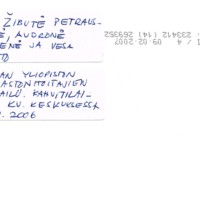 ŽIBUTĖ PETRAUS-
Ė, AUDRONĖ
ENĖ JA VESA
TO
AN YLIOPISTON
ASTONHOITAJIEN
AILU. KAHVITILAI-
KV. KESKUKSESSA
. 2006
1 / 4 09.02.2007
233412 (14) 269352